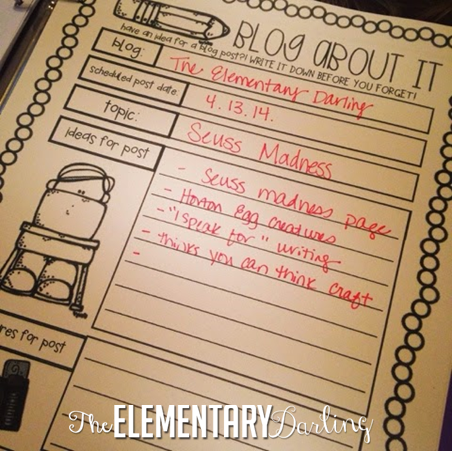 BLOG ABOUT IT
have an idea for a blog post?! WRITE IT DOWN BEFORE YOU FORGET!
blog: The Elementary Darling
scheduled post date: 4.13.14.
topic: Seuss Madness
ideas for post
- Seuss madness page
- Horton Egg creatures
- "I speak for" writing
- thinks you can think craft
-
res for post
The ELEMENTARY Darling